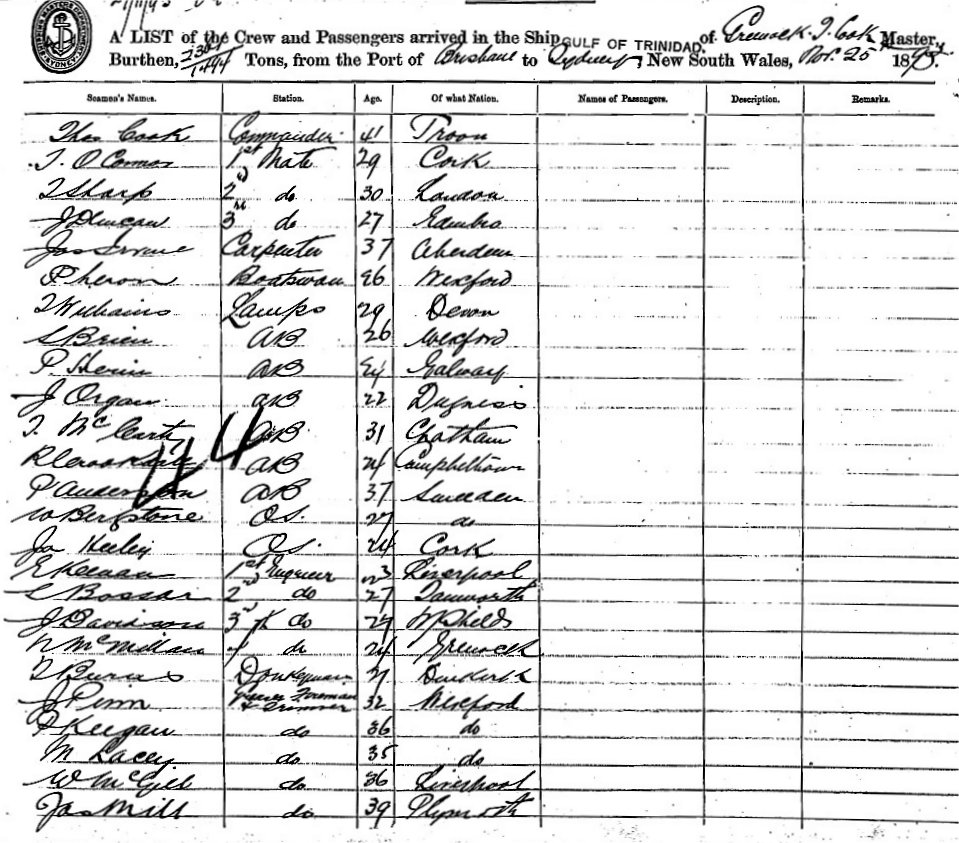 A LIST of the Crew and Passengers arrived in the Ship GULF OF TRINIDAD. of Greenock T. Cook Master,
Burthen, Tons, from the Port of Brisbane to Sydney, New South Wales, Nov. 25 187
Seamen's Names. Station. Age. Of what Nation. Names of Passengers. Description. Remarks.
Thos Cook Commander 41 Troon
T. O Connor 1st Mate 29 Cork
T Sharp 2nd do 30 London
J Duncan 3rd do 27 Edinbro
Jas Irvine Carpenter 37 Aberdeen
P heron Boatswan 26 Wexford
T Williams Lamps 29 Devon
S Brien AB 26 Wexford
P. AB 24 Galway
J Organ AB 22
T. McCarty AB 31 Chatham
44
AB 24 Campbeltown
P Anderson AB 37 Sweeden
W Bergstone O.S. 27 do
Jn Heeley O.S. 24 Cork
E Keenan 1st Engineer 23 Liverpool
2nd do 27 Tamworth
J Davidson 3rd do 27 N Shields
N McMillan 4th do 24 Greenock
T Burns Donkeyman Dunkirk
J Penn Foreman & Trimmer 32 Wexford
P Keegan do 36 do
M Lacey do 35 do
W McGill do 36 Liverpool
Jas Mill do 39 Plymouth